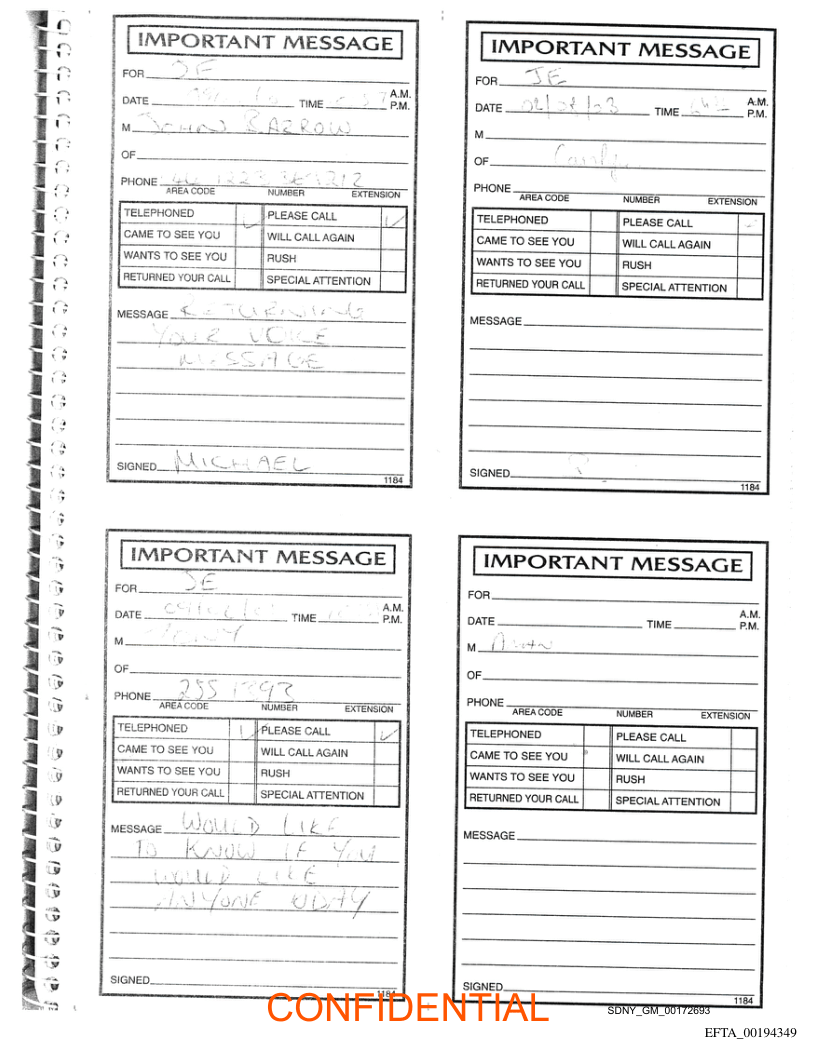 IMPORTANT MESSAGE
FOR JE
DATE TIME A.M. P.M.
M JOHN BARROW
OF
PHONE
AREA CODE NUMBER EXTENSION
TELEPHONED PLEASE CALL
CAME TO SEE YOU WILL CALL AGAIN
WANTS TO SEE YOU RUSH
RETURNED YOUR CALL SPECIAL ATTENTION
MESSAGE RETURNING
YOUR VOICE
MESSAGE
SIGNED MICHAEL
1184
IMPORTANT MESSAGE
FOR JE
DATE TIME A.M. P.M.
M
OF
PHONE
AREA CODE NUMBER EXTENSION
TELEPHONED PLEASE CALL
CAME TO SEE YOU WILL CALL AGAIN
WANTS TO SEE YOU RUSH
RETURNED YOUR CALL SPECIAL ATTENTION
MESSAGE
SIGNED
1184
IMPORTANT MESSAGE
FOR JE
DATE TIME A.M. P.M.
M
OF
PHONE 255 1393
AREA CODE NUMBER EXTENSION
TELEPHONED PLEASE CALL
CAME TO SEE YOU WILL CALL AGAIN
WANTS TO SEE YOU RUSH
RETURNED YOUR CALL SPECIAL ATTENTION
MESSAGE WOULD LIKE
TO KNOW IF YOU
WOULD LIKE
ANYONE
SIGNED
1184
IMPORTANT MESSAGE
FOR
DATE TIME A.M. P.M.
M
OF
PHONE
AREA CODE NUMBER EXTENSION
TELEPHONED PLEASE CALL
CAME TO SEE YOU WILL CALL AGAIN
WANTS TO SEE YOU RUSH
RETURNED YOUR CALL SPECIAL ATTENTION
MESSAGE
SIGNED
1184
CONFIDENTIAL
SDNY_GM_00172693
EFTA_00194349